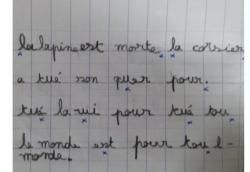 la lapine est morte. la corsier
a tué son quer pour.
tué la vui pour tué tou
le monde est pour tou l-
monde.